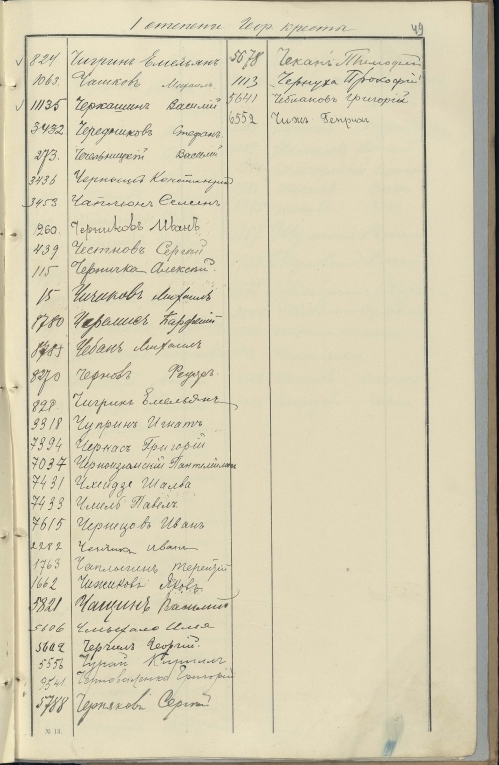 1 степени Геор. кресты
49
824 Чигринъ Емельянъ
1063 Чашковъ Михаилъ
11135 Черкашинъ Василій
3432 Чередниковъ Стефанъ
273. Василій
3436 Константинъ
3453 Семенъ
260. Черниковъ Иванъ
439 Честновъ Сергѣй
115 Черничка Алексѣй.
15 Чичиковъ Михаилъ
8780 Парфеній
Чебанъ Михаилъ
8270 Черновъ Федоръ.
828. Чигринъ Емельянъ
3318 Чупринъ Игнатъ
7394 Чернасъ Григорій
7037 Пантелеймонъ
7431 Чхеидзе Шалва
7433 Чмиль Павелъ
7615 Чернцовъ Иванъ
2282 Иванъ
1763 Чаплыгинъ Терентій
1662 Чижиковъ Яковъ
5821 Чащинъ Василій
5606 Илья
5602 Черчилъ Георгій.
5556 Чурай Кириллъ
9541 Черноваленко Григорій
5788 Черняковъ Сергѣй
5678 Чеканъ Тимофей
1113 Чернуха Прокофій
5641 Чебановъ Григорій
6552 Чижъ Генрихъ
№ 13.